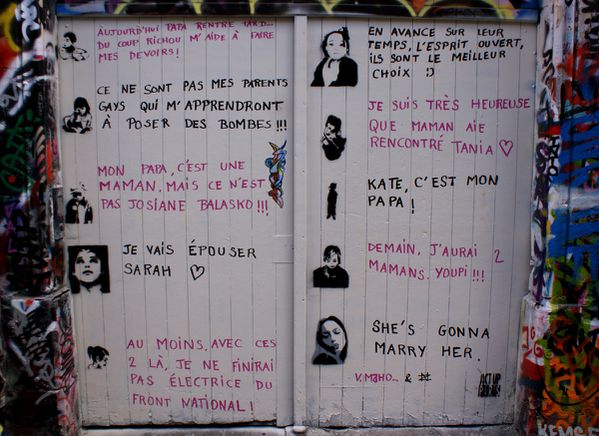 AUJOURD'HUI PAPA RENTRE TARD...
DU COUP RICHOU M'AIDE À FAIRE
MES DEVOIRS!
CE NE SONT PAS MES PARENTS
GAYS QUI M'APPRENDRONT
À POSER DES BOMBES!!!
MON PAPA, C'EST UNE
MAMAN, MAIS CE N'EST
PAS JOSIANE BALASKO!!!
JE VAIS ÉPOUSER
SARAH ♡
AU MOINS, AVEC CES
2 LÀ, JE NE FINIRAI
PAS ÉLECTRICE DU
FRONT NATIONAL!
EN AVANCE SUR LEUR
TEMPS, L'ESPRIT OUVERT,
ILS SONT LE MEILLEUR
CHOIX :)
JE SUIS TRÈS HEUREUSE
QUE MAMAN AIE
RENCONTRÉ TANIA ♡
KATE, C'EST MON
PAPA!
DEMAIN, J'AURAI 2
MAMANS. YOUPI!!!
SHE'S GONNA
MARRY HER.
V. MAHO.. &
ACT UP